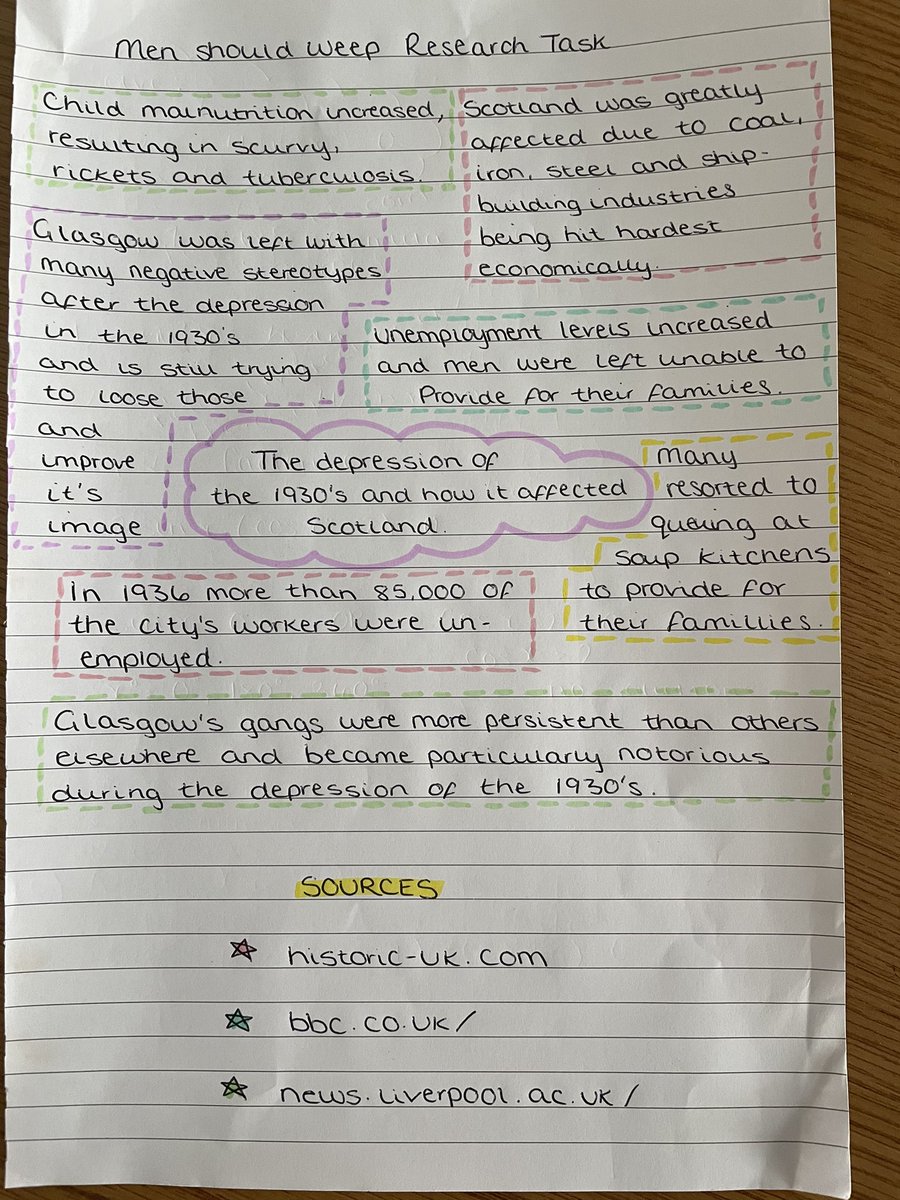 Men should weep Research Task
Child malnutrition increased,
resulting in scurvy,
rickets and tuberculosis.
Scotland was greatly
affected due to coal,
iron, steel and ship-
building industries
being hit hardest
economically.
Glasgow was left with
many negative stereotypes
after the depression
in the 1930's
and is still trying
to loose those
and
improve
it's
image
Unemployment levels increased
and men were left unable to
Provide for their families.
The depression of
the 1930's and how it affected
Scotland.
Many
resorted to
queuing at
soup kitchens
to provide for
their famillies.
In 1936 more than 85,000 of
the city's workers were un-
employed.
Glasgow's gangs were more persistent than others
elsewhere and became particularly notorious
during the depression of the 1930's.
SOURCES
historic-uk.com
bbc.co.uk/
news.liverpool.ac.uk/